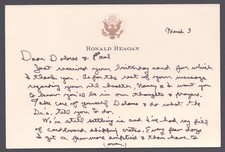 RONALD REAGAN
March 3
Dear Dolores & Paul
Just received your birthday card for which
I thank you. As for the rest of your message
regarding your ill health, Nancy & I want you
to know you'll be in our thoughts & prayers.
Take care of yourself Dolores & do what the
Dr's. tell you to do.
We're still settling in and I've had my fill
of cardboard shipping crates. Every few days
we get a few more emptied & than have to
(over)